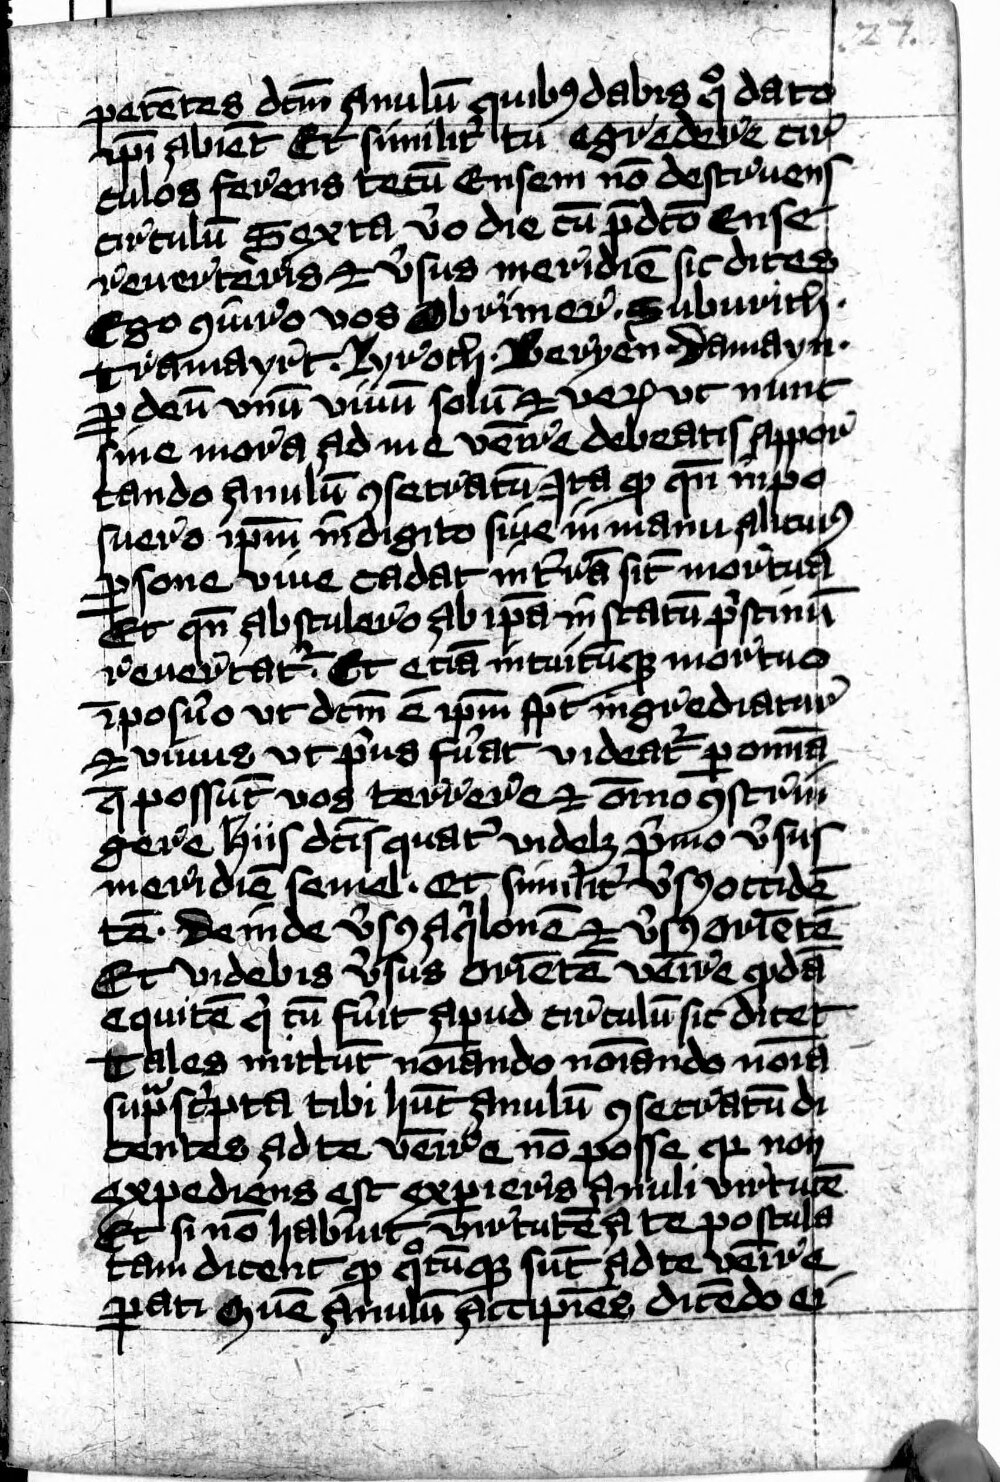 27.
petētes dcm̄ anulū quibꝰ dabis qͦ dato
ip̄i abiēt Et similit̾ tu egredere cir
culos ferens tecū Ensem nō destruens
circulū Sexta v̾o die cū p̄dco Ense
reuerteris ⁊ v̾sus meridiē sic dices
Ego ꝯiuro vos Obrimer. Suburith.
Tramayrt. Lyroth. Beryen. Damayn.
ꝑ deū vnū viuū solū ⁊ veꝝ vt nunc
sine mora ad me venire debeatis appor
tando anulū ꝯsecratū Ita ꝙ qn̄ inpo
suero ip̄m in digito siue in manu alicuiꝰ
ꝑsone viue cadat in t̾rā sic̄ mortua
Et qn̄ abstulero ab ip̄a in statū p̾stinū
reuertat̾. Et etiā in cuicūqꝫ mortuo
īposu̾o vt dcm̄ ē ip̄m sp̄c ingrediatur
⁊ viuus vt p̾us fu̾at videat̾ ꝑ omīa
q̄ possūt vos terrere ⁊ om̄ino ꝯstrin
gere hiis dcīs quat̾ videlꝫ p̾mo v̾sus
meridiē semel. Et similit̾ v̾sꝰ occidē
tē. Deinde v̾sꝰ aq̾lonē ⁊ v̾sꝰ oriētē
Et videbis v̾sus oriētē venire qdā
equitē q̾ cū fu̾it apud circulū sic dicet
Tales mittūt noīando noīando noīa
sup̃sc̾pta tibi hūc anulū ꝯsecratū di
centes ad te venire nō posse qꝛ non
expediens est exꝑieris anuli virtutē
Et si nō habu̾it virtutē a te postula
tam dicent ꝙ qͦcūqꝫ sūt ad te venire
ꝑati Quē anulū accipiēs dicēdo ei